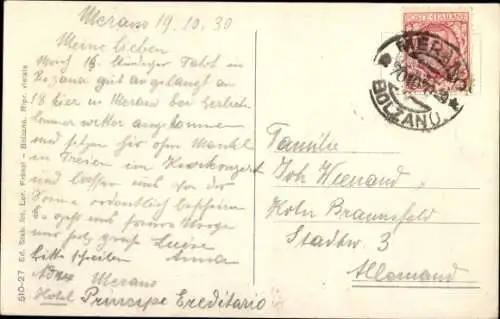 Merano 19.10.30
Meine Lieben
Nach 15 stündiger Fahrt in
Bozana gut angelangt
18 hier in Meran bei
sommer wetter angekommen
und sitzen hier ohne Mantel
im Freien im Kurkonzert
und lassen uns von der
Sonne ordentlich bescheinen
Es
und
Bitte schreiben Anna
Adres Merano
Hotel Principe Ereditario
510-27 Ed. Stab. Int. Lor. Fränzl - Bolzano. Ripr. vietata
POSTE ITALIANE
MERANO
BOLZANO
Familie
Joh Wienand
Köln Braunsfeld
Stadtw. 3
Allemand